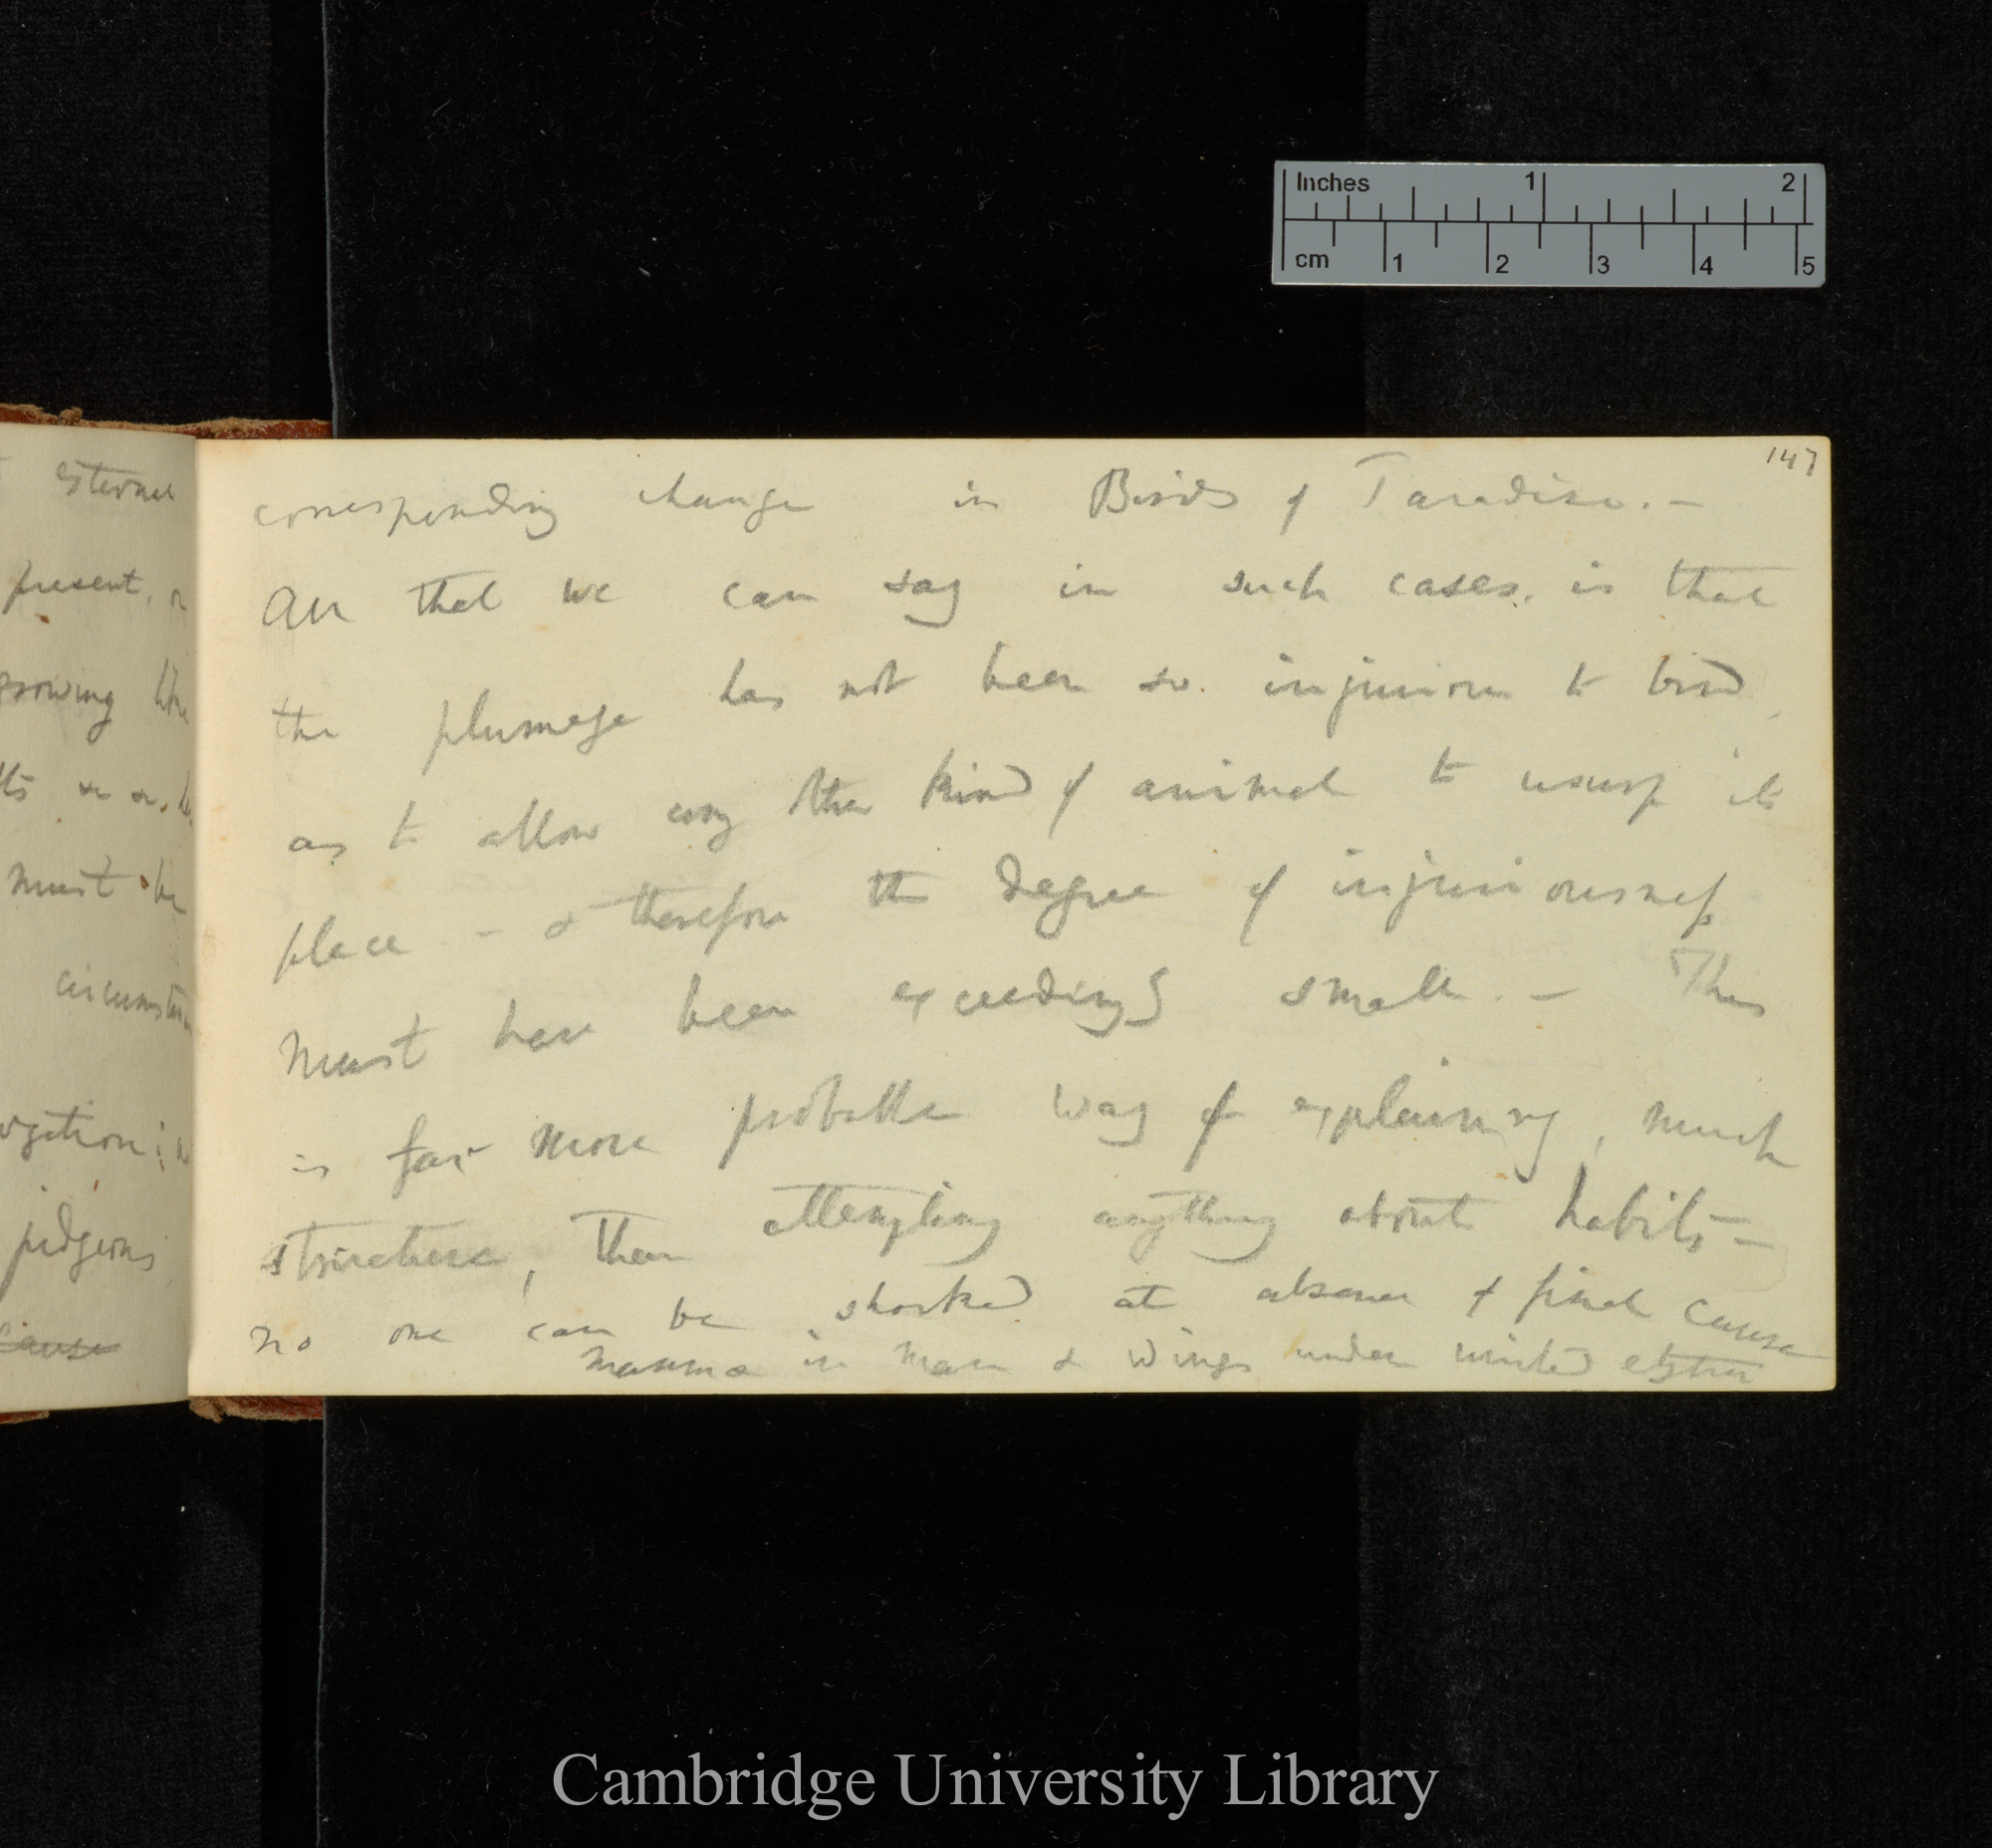 Inches 1 2
cm 1 2 3 4 5
external
present, or
growing like
must be
circumstan
pidgeons
cause
147
corresponding change in Birds of Paradise. —
All that we can say in such cases, is that
the plumage has not been so injurious to bird
as to allow any other kind of animal to usurp its
place — & therefore the degree of injuriousness
must have been exceedingly small. — This
is far more probable way of explaining, much
structure, than attempting anything about habits —
no one can be shocked at absence of final cause
mamma in man & wings under united elytra
Cambridge University Library